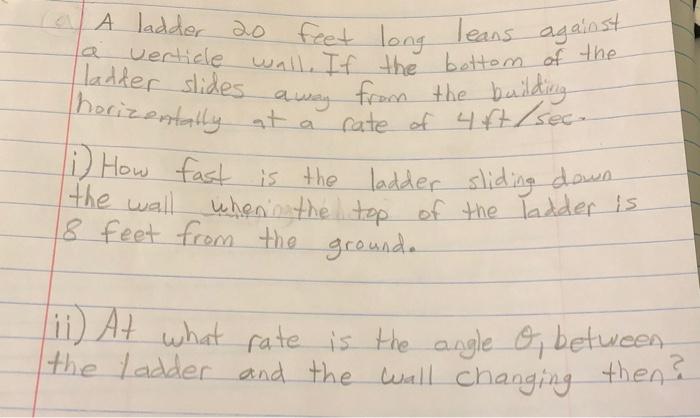 A ladder 20 feet long leans against
a verticle wall. If the bottom of the
ladder slides away from the building
horizontally at a rate of 4 ft/sec.
i) How fast is the ladder sliding down
the wall when the top of the ladder is
8 feet from the ground.
ii) At what rate is the angle θ, between
the ladder and the wall changing then?